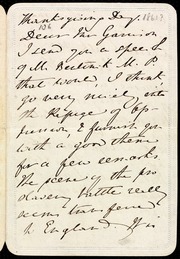 Thanksgiving Day. 1861?
Dear Mr Garrison
I send you a speech
of Mr M. P.
that would I think
go very nicely into
the Refuge of Op-
pression, & furnish you
with a good theme
for a few remarks
The scene of the pro
slavery battle really
seems
to England. It is